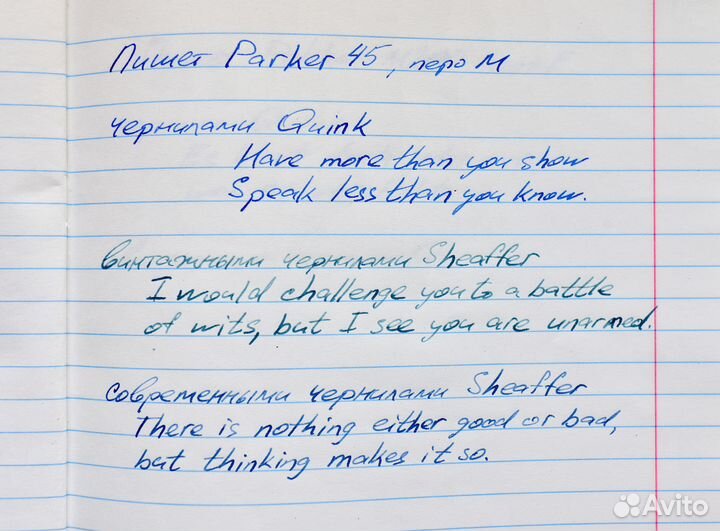 Пишет Parker 45, перо М
чернилами Quink
Have more than you show
Speak less than you know.
винтажными чернилами Sheaffer
I would challenge you to a battle
of wits, but I see you are unarmed.
современными чернилами Sheaffer
There is nothing either good or bad,
but thinking makes it so.
Avito